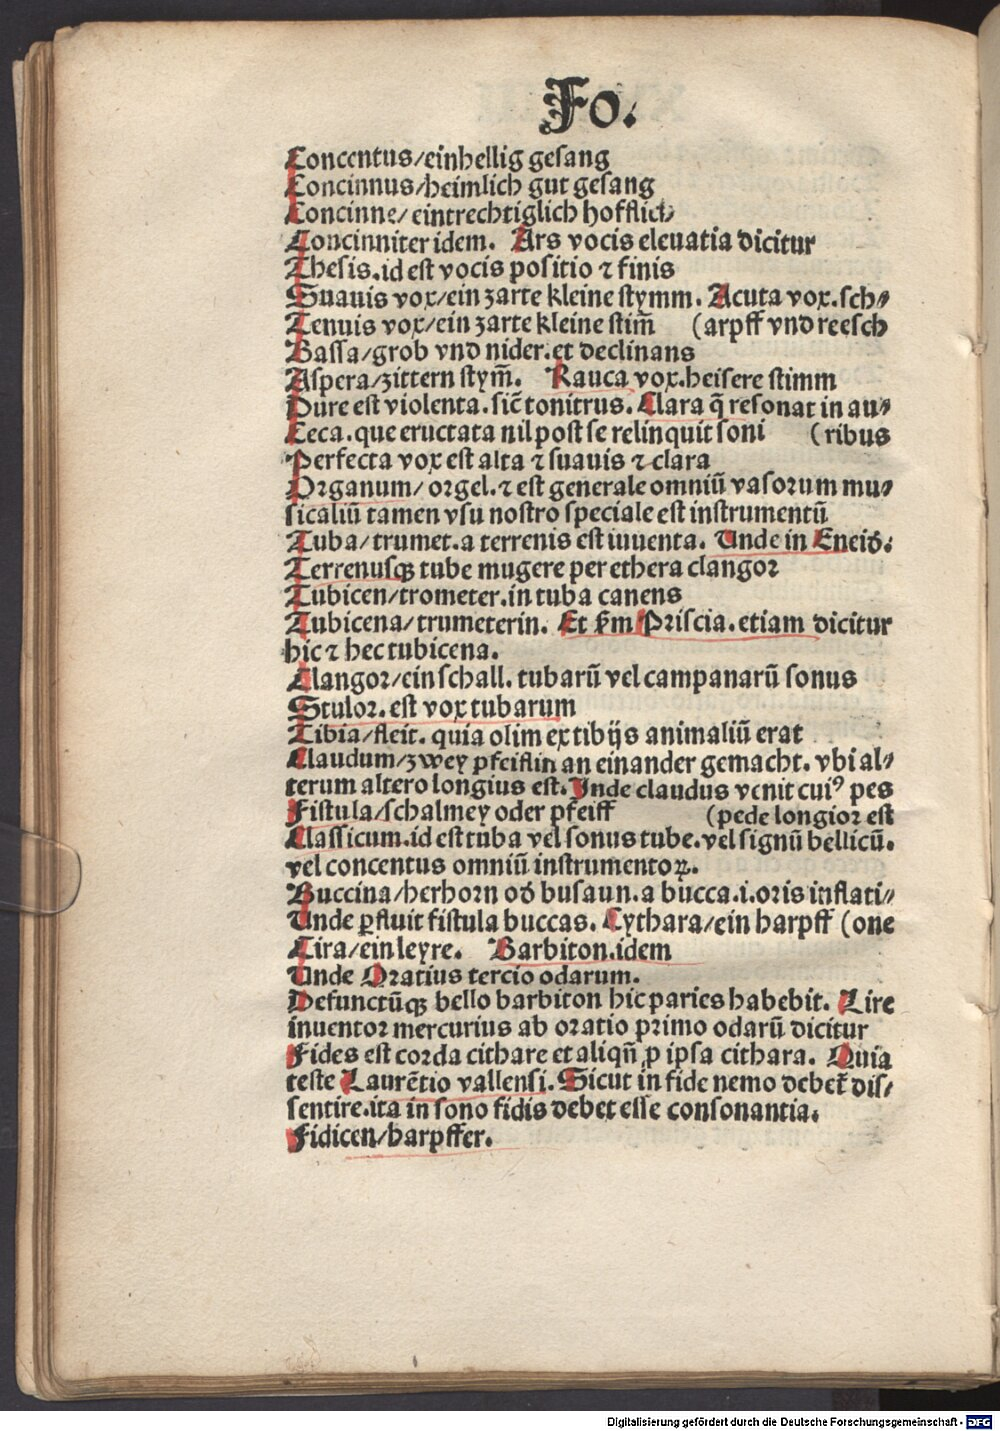 Fo.
Concentus/einhellig gesang
Concinnus/heimlich gut gesang
Concinne/eintrechtiglich hofflich/
Concinniter idem. Ars vocis eleuatia dicitur
Thesis.id est vocis positio ⁊ finis
Suauis vox/ein zarte kleine stymm. Acuta vox.sch⸗
Tenuis vox/ein zarte kleine stim̃ (arpff vnd reesch
Bassa/grob vnd nider.et declinans
Aspera/zittern stym̃. Rauca vox.heisere stimm
Dure est violenta.sic̃ tonitrus. Clara q̃ resonat in au⸗
Ceca.que eructata nil post se relinquit soni (ribus
Perfecta vox est alta ⁊ suauis ⁊ clara
Organum/orgel.⁊ est generale omniũ vasorum mu⸗
sicaliũ tamen vsu nostro speciale est instrumentũ
Tuba/trumet.a terrenis est iuuenta. Unde in Eneid̃.
Terrenusqꝫ tube mugere per ethera clangor
Tubicen/trometer.in tuba canens
Tubicena/trumeterin. Et ẜm Priscia.etiam dicitur
hic ⁊ hec tubicena.
Clangor/ein schall.tubarũ vel campanarũ sonus
Stulor.est vox tubarum
Tibia/fleit.quia olim ex tibijs animaliũ erat
Claudum/zwey pfeiflin an einander gemacht.vbi al⸗
terum altero longius est.Inde claudus venit cuiꝰ pes
Fistula/schalmey oder pfeiff (pede longior est
Classicum.id est tuba vel sonus tube.vel signũ bellicũ.
vel concentus omniũ instrumentoꝝ.
Buccina/herhorn od̃ busaun.a bucca.i.oris inflati⸗
Unde ꝑfluit fistula buccas. Cythara/ein harpff (one
Lira/ein leyre. Barbiton.idem
Unde Oratius tercio odarum.
Defunctũqꝫ bello barbiton hic paries habebit. Lire
inuentor mercurius ab oratio primo odarũ dicitur
Fides est corda cithare et aliqñ ꝓ ipsa cithara. Quia
teste Laurẽtio vallensi.Sicut in fide nemo debet̃ dis⸗
sentire.ita in sono fidis debet esse consonantia.
Fidicen/harpffer.
Digitalisierung gefördert durch die Deutsche Forschungsgemeinschaft - DFG